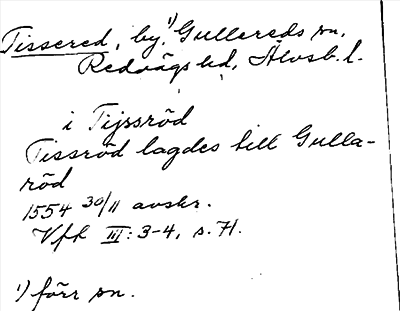 Tissered, by,¹⁾ Gullereds sn.
Redvägs hd, Älvsb. l.
i Tijssröd
Tissröd lagdes till Gulla-
röd
1554 30/11 avskr.
Vfh III: 3-4, s. 71.
¹⁾ förr sn.